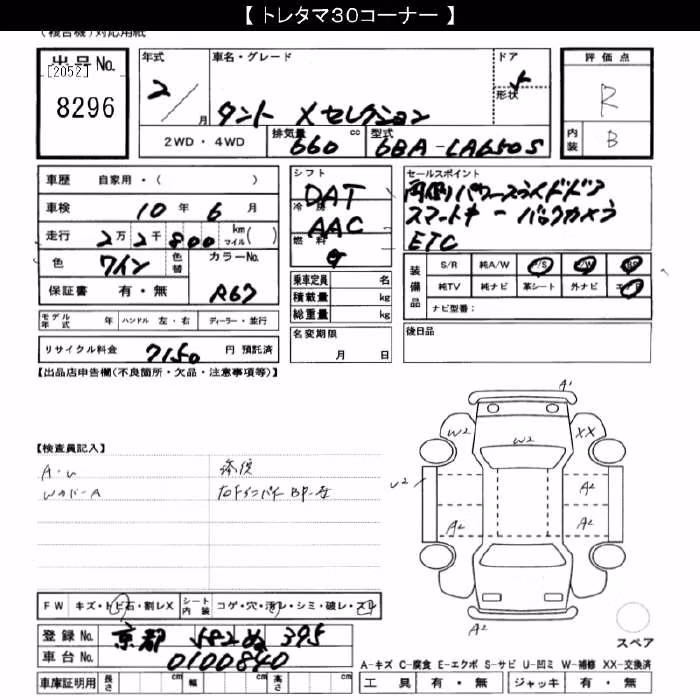 【 トレタマ30コーナー 】
(複合機)対応用紙
出品No.
[2052]
8296
年式 2 / 月
車名・グレード
タント Xセレクション
ドア 5
形状
評価点
R
内装 B
2WD・4WD 排気量 660 cc 型式 6BA-LA650S
車歴 自家用・( )
車検 10 年 6 月
走行 2万2千800 km マイル( )
色 ワイン 色替 カラーNo.
保証書 有・無 R67
シフト DAT
冷房 AAC
燃料 G
乗車定員 名
積載量 kg
総重量 kg
セールスポイント
両側パワースライドドア
スマートキー バックカメラ
ETC
装備品
S/R 純A/W P/S P/W
純TV 純ナビ 革シート 外ナビ エアB
ナビ型番:
モデル年式 年 ハンドル 左・右 ディーラー・並行
名変期限 月 日
後日品
リサイクル料金 7150 円 預託済
【出品店申告欄(不良箇所・欠品・注意事項等)】
【検査員記入】
A・U 修復
右Fインパネ BP-左
A1
W2 W2 XX
U2 A2
A2 A2
A2
スペア
FW キズ・トビ石・割レX シート内装 コゲ・穴・汚レ・シミ・破レ・スレ
登録No. 京都 582 ぬ 395
車台No. 0100840
A-キズ C-腐食 E-エクボ S-サビ U-凹ミ W-補修 XX-交換済
車庫証明用 長さ cm 幅 cm 高さ cm
工具 有・無 ジャッキ 有・無